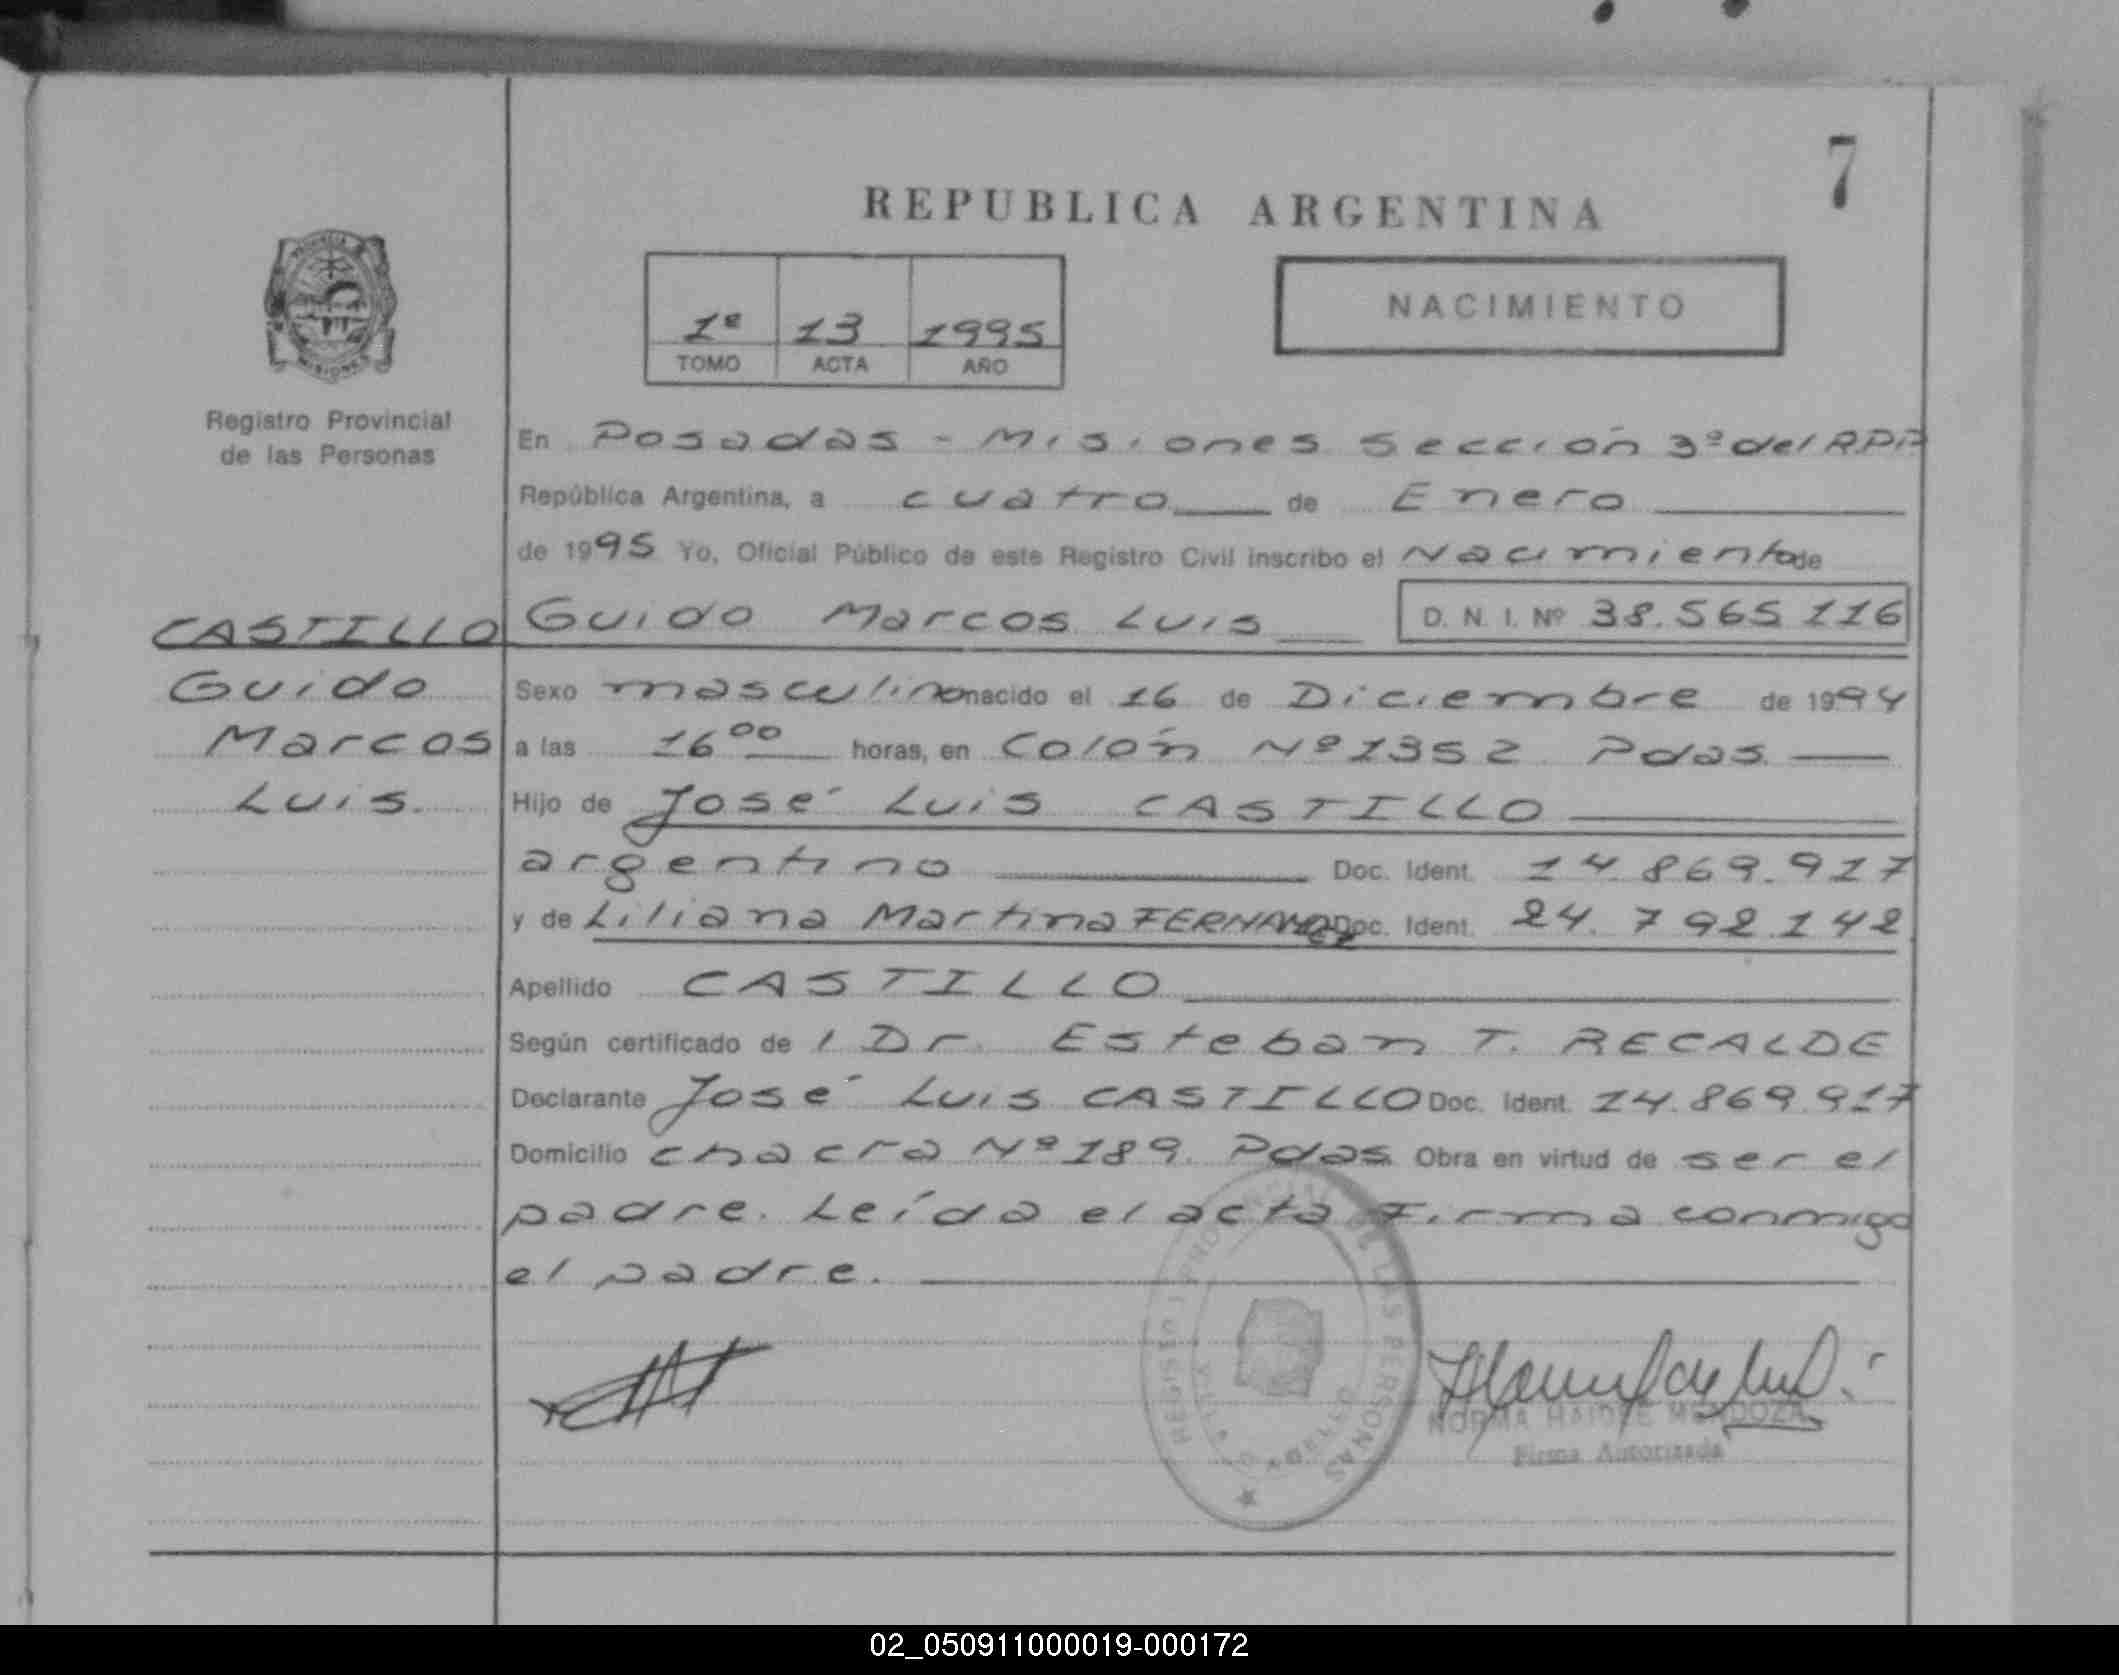 7
REPUBLICA ARGENTINA
PROVINCIA DE MISIONES
1º 13 1995
TOMO ACTA AÑO
NACIMIENTO
Registro Provincial
de las Personas
En Posadas - Misiones Sección 3º del R.P.P
República Argentina, a cuatro de Enero
de 1995 Yo, Oficial Público de este Registro Civil inscribo el Nacimiento de
CASTILLO Guido Marcos Luis D. N. I. Nº 38.565 116
Guido
Marcos
Luis.
Sexo masculino nacido el 16 de Diciembre de 1994
a las 16 00 horas, en Colón Nº 1352 Pdas.
Hijo de José Luis CASTILLO
argentino Doc. Ident. 14.869.917
y de Liliana Martina FERNANDEZ Doc. Ident. 24.792.142
Apellido CASTILLO
Según certificado de l Dr. Esteban T. RECALDE
Declarante José Luis CASTILLO Doc. Ident. 14.869.917
Domicilio chacra Nº 189. Pdas. Obra en virtud de ser el
padre. Leída el acta Firma conmigo
el padre.
REGISTRO PROVINCIAL DE LAS PERSONAS
NORMA HAIDEE MENDOZA
Firma Autorizada
02_050911000019-000172